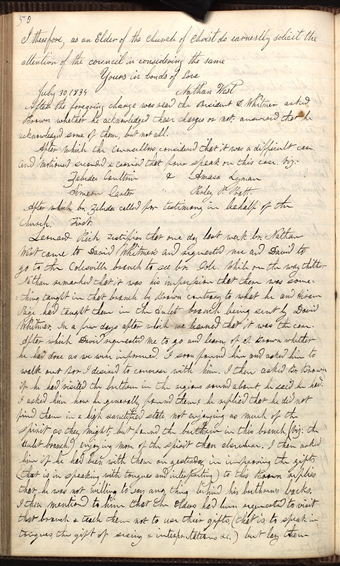 58
I therefore, as an Elder of the Church of Christ do earnestly solicit the
attention of the council in considering the same
Yours in bonds of love
July 30 1834 Nathan West
After the foregoing charge was read the President D. Whitmer asked
Brown whether he acknowledged these charges or not, answered that he
acknowledged some of them, but not all.
After which the counsellors considered that it was a difficult case
and motioned seconded & carried that four speak on this case viz:
Zebedee Coultrin & Amasa Lyman
Simeon Carter Parley P. Pratt
After which br. Zebedee called for testimony in behalf of the
Church. First.
Leonard Rich testified that one day last week br. Nathan
West came to David Whitmer's and requested me and David to
go to the Colesville branch to see br. While on the way thither
Nathan remarked that it was his impression that there was some-
thing taught in that branch by Brown contrary to what he and
Page had taught them in the branch being sent by David
Whitmer. In a few days after which we learned that it was the case.
After which David requested me to go and learn of Brown whether
he had done as we were informed. I soon found him and asked him to
walk out for I desired to converse with him. I then asked br. Brown
if he had visited the brethren in the regions round about he said he had
I asked him how he generally found them he replied that he did not
find them in a high sanctified state not enjoying as much of the
spirit as they might, but found the brethren in this branch (viz: the
branch) enjoying more of the spirit than elsewhere. I then asked
him if he had been with them on yesterday, in improving the gifts
(that is in speaking with tongues and interpreting) to this Brown replied
that he was not willing to say any thing behind his brethren's backs.
I then mentioned to him that the Elders had been requested to visit
that branch & teach them not to use their gifts, (that is to speak in
tongues the gift of seeing & interpretation &c.,) but lay them